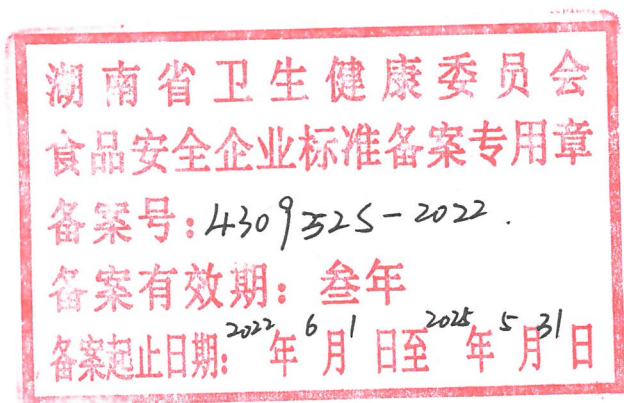 湖南省卫生健康委员会
食品安全企业标准备案专用章
备案号：4309352S-2022.
备案有效期：叁年
备案起止日期：2022年6月1日至2025年5月31日